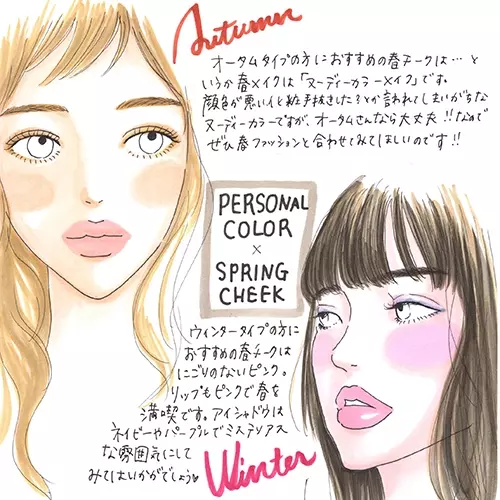 Autumn
オータムタイプの方におすすめの春チークは…と
いうか春メイクは「ヌーディーカラーメイク」です。
顔色が悪いとか手抜きした?とか言われてしまいがちな
ヌーディーカラーですが、オータムさんなら大丈夫!!なので
ぜひ春ファッションと合わせてみてほしいのです!!
PERSONAL
COLOR
×
SPRING
CHEEK
ウィンタータイプの方に
おすすめの春チークは
にごりのないピンク。
リップもピンクで春を
満喫です。アイシャドウは
ネイビーやパープルでミステリアス
な雰囲気にして
みてはいかがでしょう
Winter